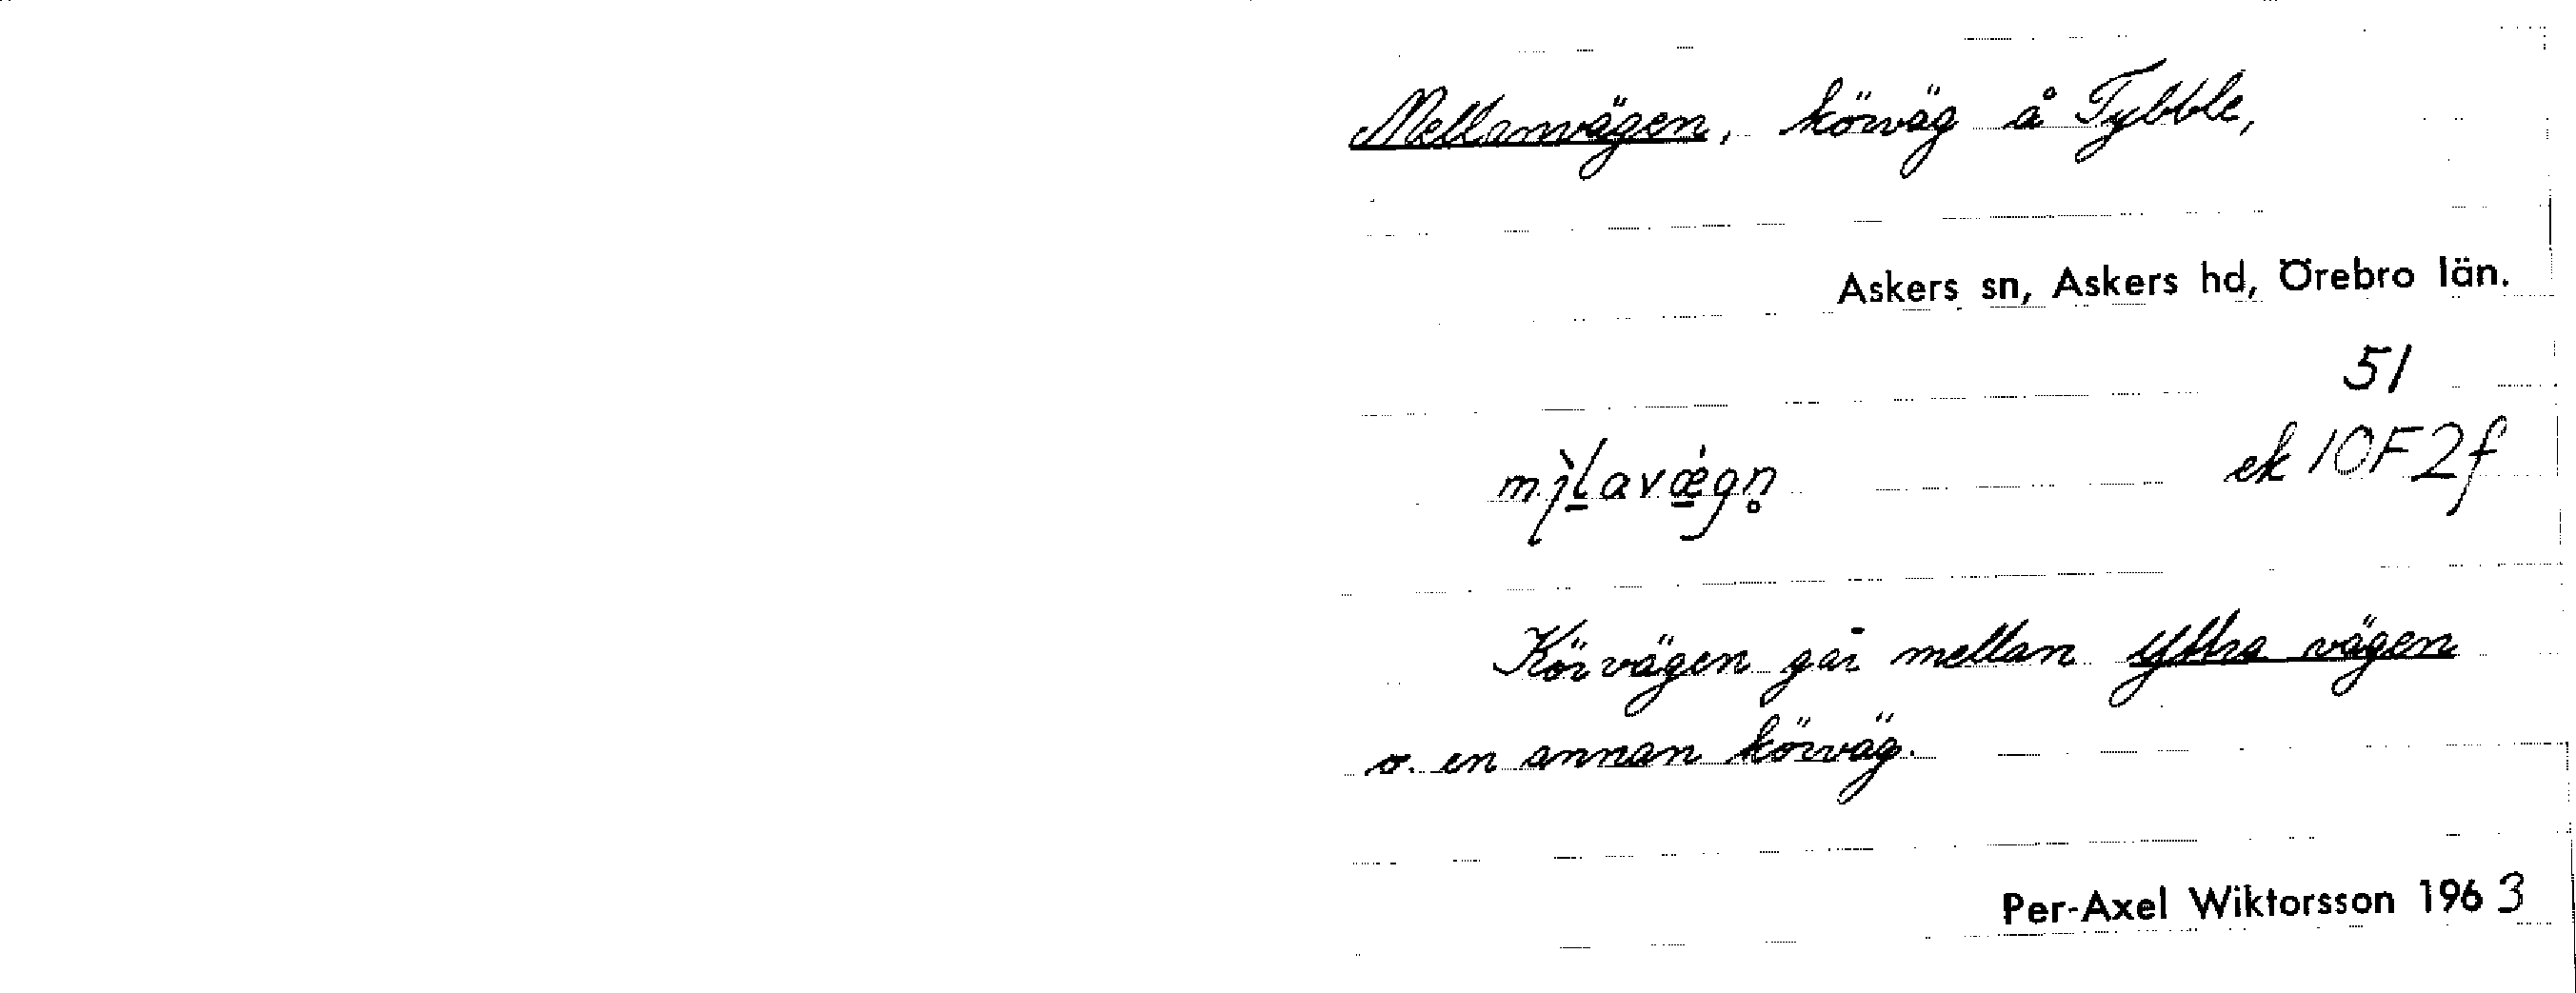 Mellanvägen, körväg å Tybble,
Askers sn, Askers hd, Örebro län.
51
ek 10F2f
Körvägen går mellan yttra vägen
o. en annan körväg.
Per-Axel Wiktorsson 1963